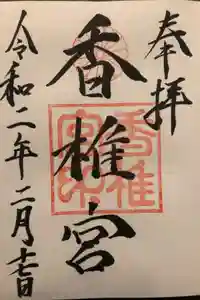 奉拝
香椎宮
香椎
宮印
令和二年二月十七日